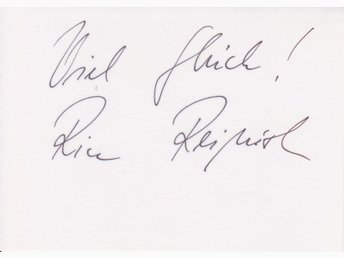 Viel Glück!
Rica Reinisch